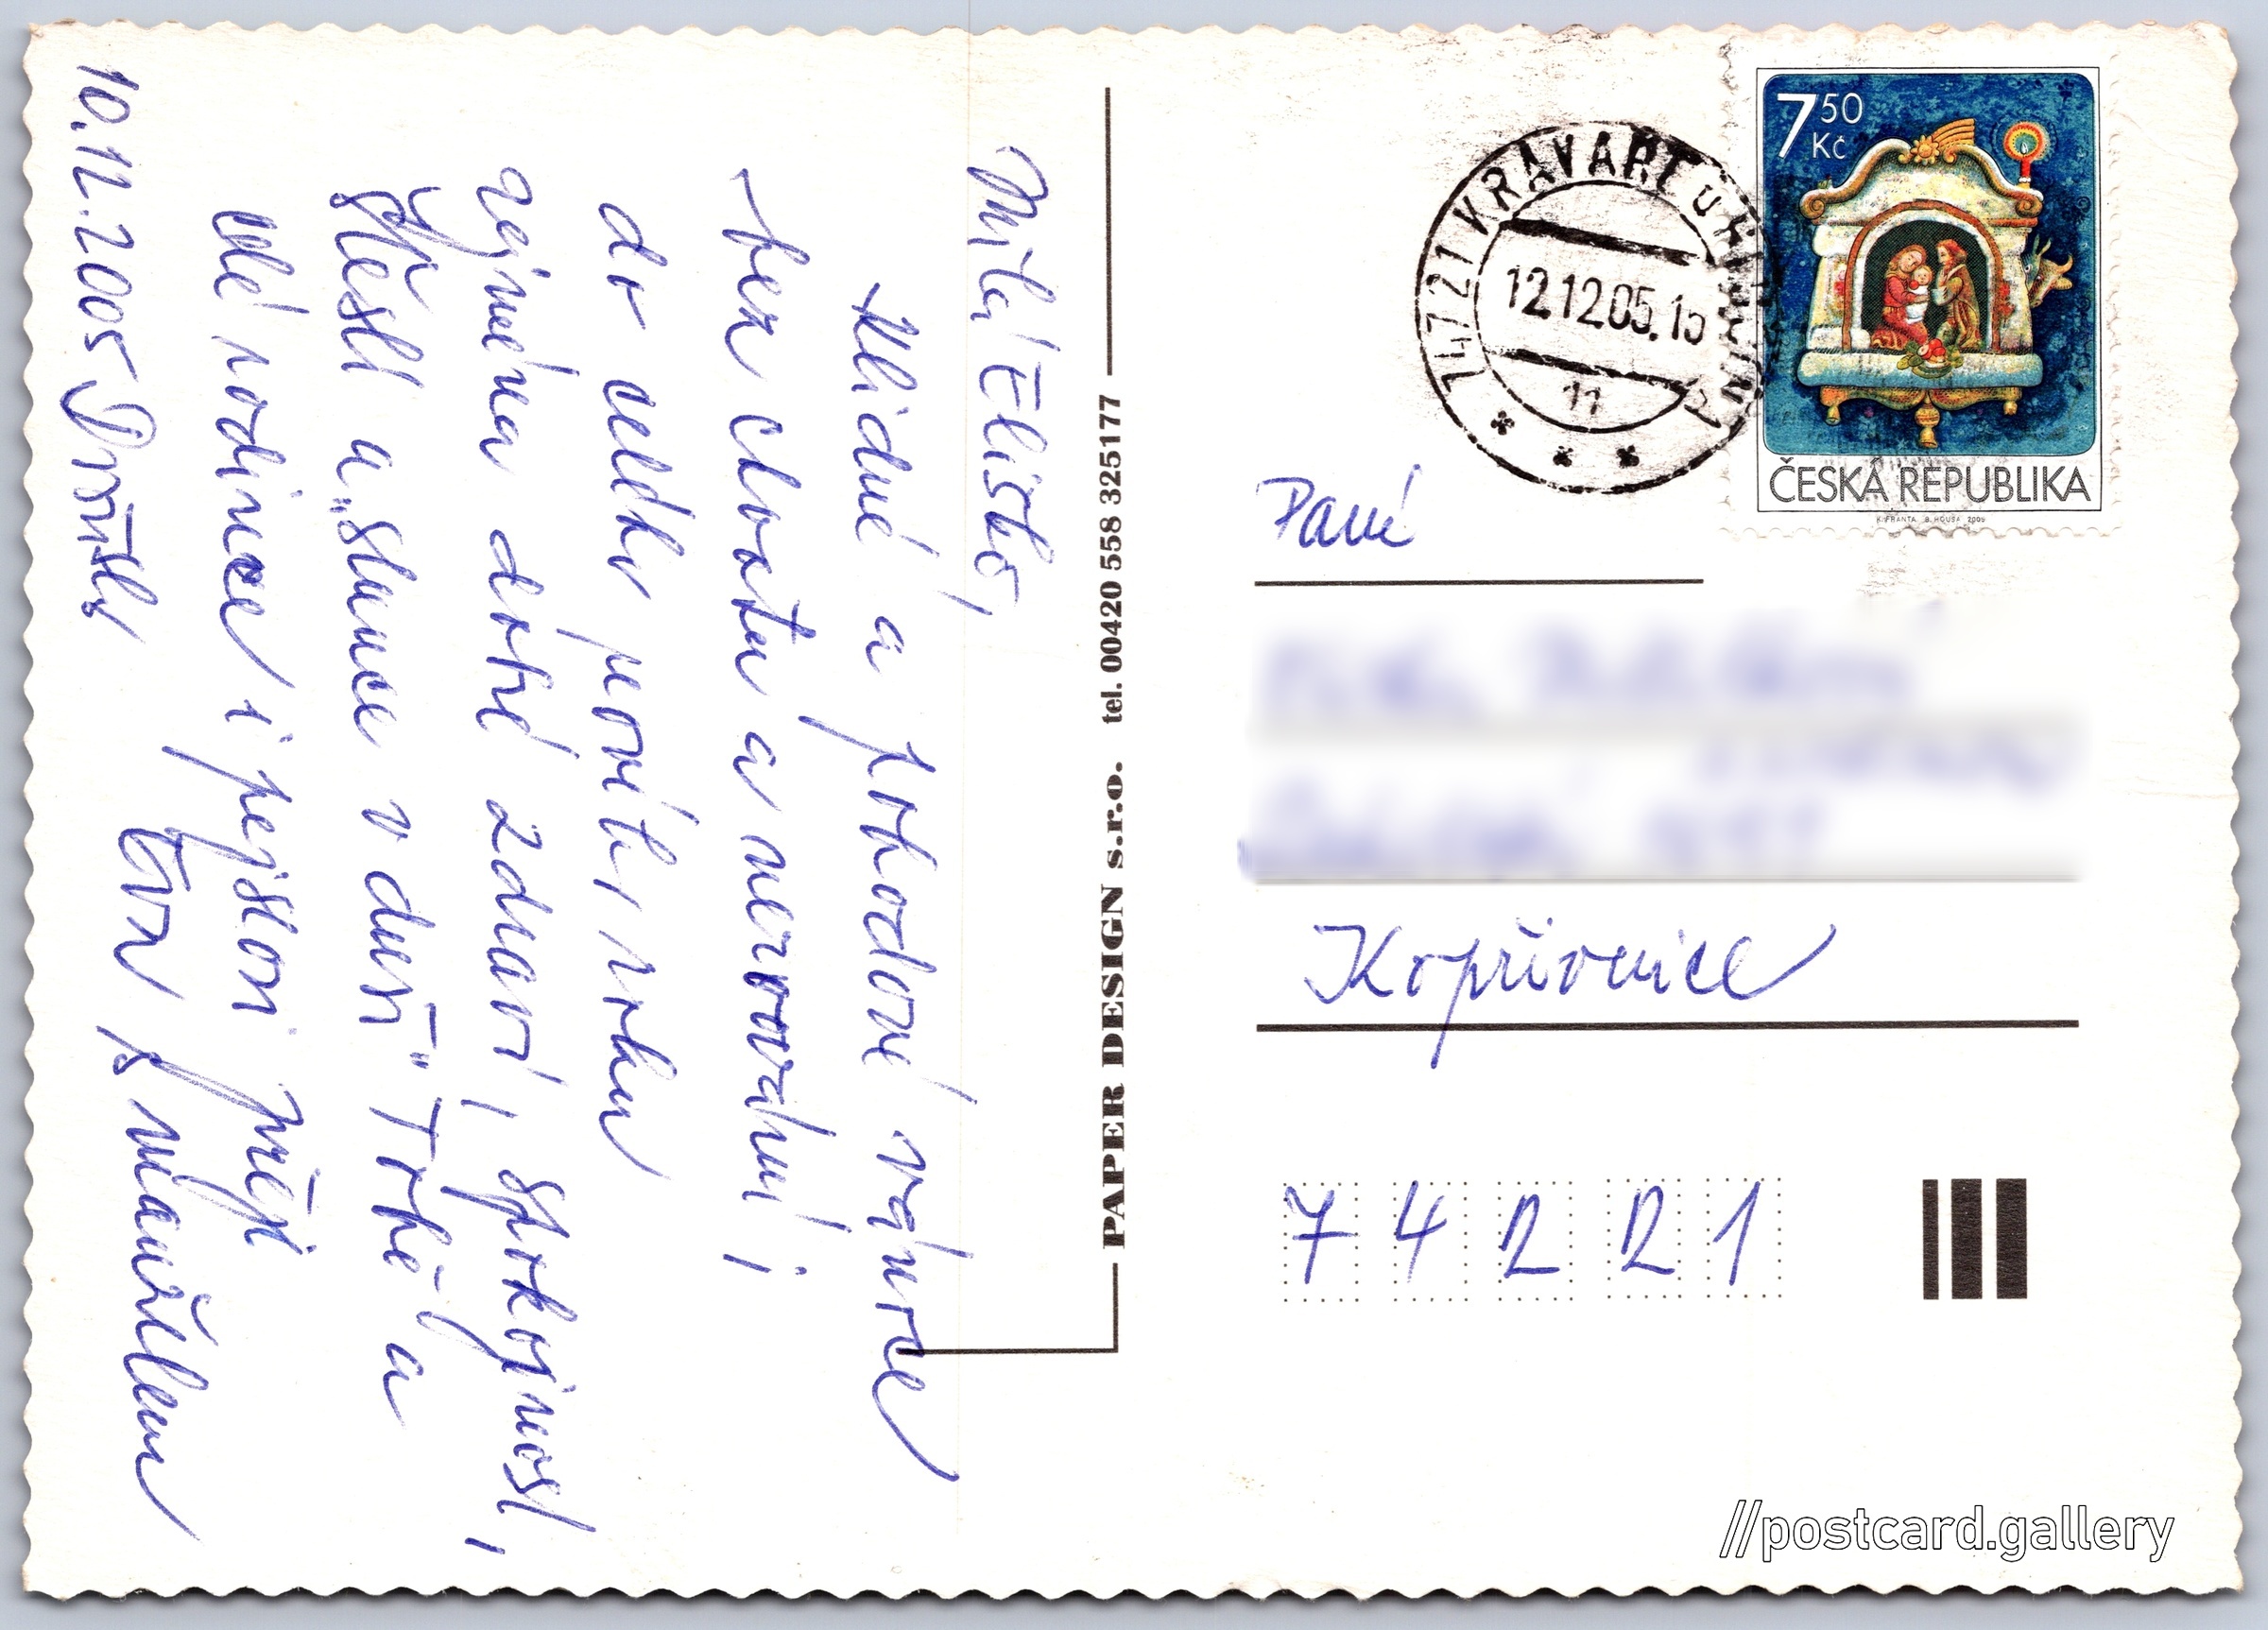 Milá Eliško,
klidné a pohodové vánoce
bez chvatu a nervování,
do celého nového roku
zejména dobré zdraví, spokojenost,
štěstí a „slunce v duši" Tobě a
celé rodince i pejskovi přeje
Eva s manželem
10.12.2005
PAPER DESIGN s.r.o. tel. 00420 558 325177
747 21 KRAVAŘE U
12.12.05.15
11
7 50 Kč
ČESKÁ REPUBLIKA
K. FRANTA B. HOUSA 2005
Paní
Kopřivnice
7 4 2 2 1
//postcard.gallery